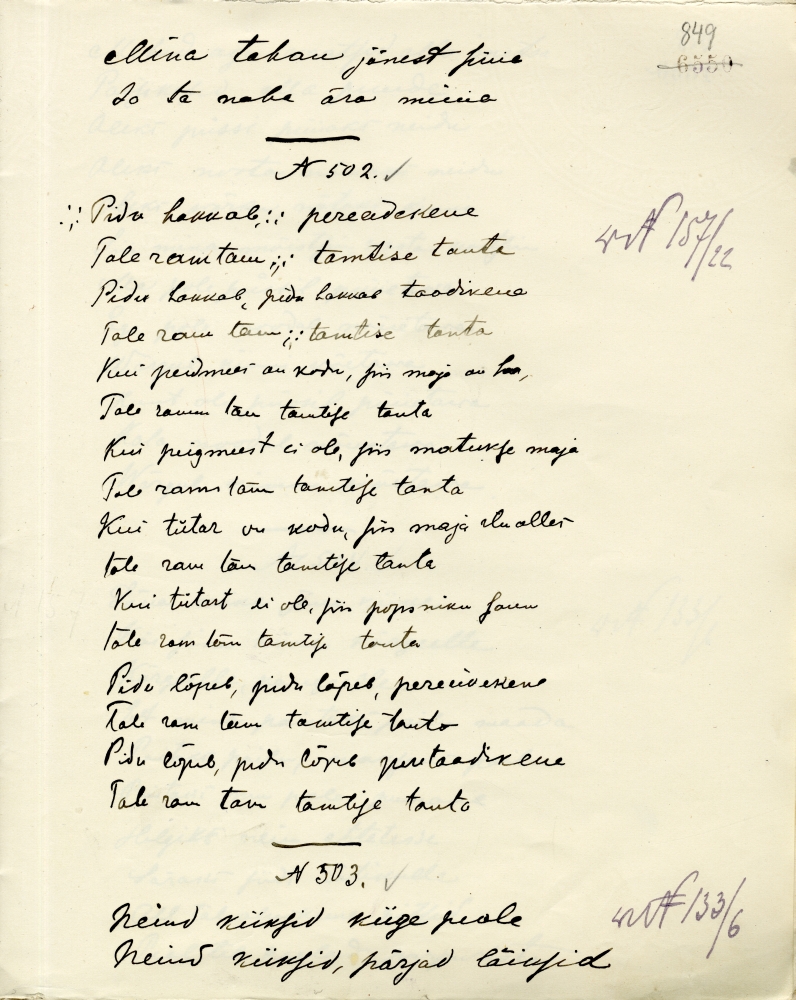 849
6550
Mina tahan jänest püia
Jo ta naha ära müia
№ 502.
:,: Pidu hakkab :,: pereädekene
Tale ram tam :,: tamtise tanta
Pidu hakkab, pidu hakkab taadikene
Tale ram tam :,: tamtise tanta
Kui peidmees on kodu, siis maja on
Tale ramm tam tamtise tanta
Kui peigmeest ei ole, siis matukse maja
Tale ram tam tamtise tanta
Kui tütar on kodu, siis maja ilu alles
tale ram tam tamtise tanta
Kui tütart ei ole, siis popsniku saun
tale ram tam tamtise tanta
Pidu lõpeb, pidu lõpeb, pereeidekene
Tale ram tam tamtise tanta
Pidu lõpeb, pidu lõpeb peretaadikene
Tale ram tam tamtise tanta
№ 503.
Neiud küiksid küge peale
Neiud küiksid, pärjad läiksid
№ 157/22
№ 133/6